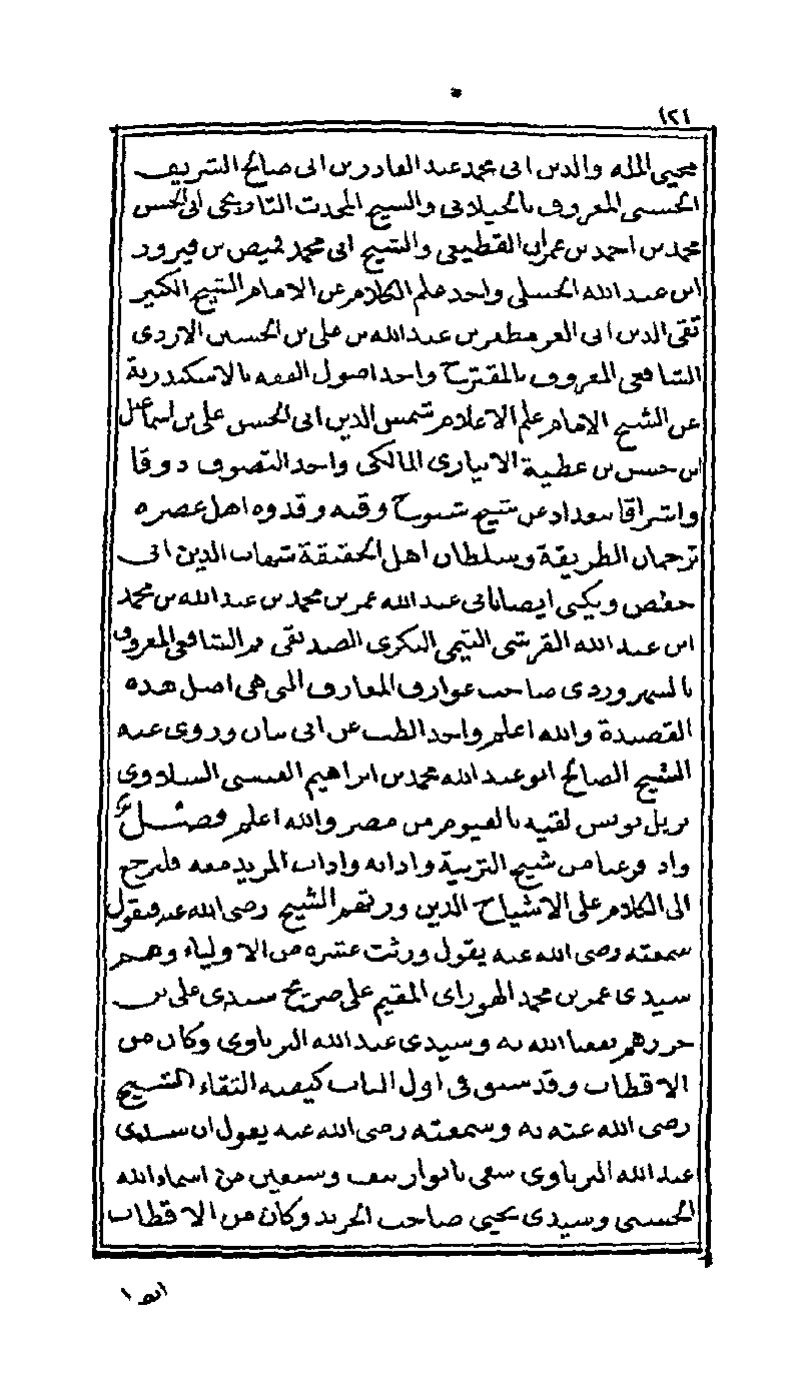 ١٢١
محيى الملة والدين ابى محمد عبد القادر بن ابى صالح الشريف
الحسنى المعروف بالجيلانى والشيخ المحدث التاريخى ابى الحسن
محمد بن احمد بن عمران القطيعى والشيخ ابى محمد قميص بن فيروز
ابن عبد الله الحنبلى واخذ علم الكلام عن الامام الشيخ الكبير
تقى الدين ابى العز مظفر بن عبد الله بن على بن الحسين الازدى
الشافعى المعروف بالمقترح واخذ اصول الفقه بالاسكندرية
عن الشيخ الامام علم الاعلام شمس الدين ابى الحسن على بن اسماعيل
ابن حسن بن عطية الابيارى المالكى واخذ التصوف ذوقا
واشراقا ببغداد عن شيخ شيوخ وقته وقدوه اهل عصره
ترجمان الطريقة وسلطان اهل الحقيقة شهاب الدين ابى
حفص ويكنى ايضا بابى عبد الله عمر بن محمد بن عبد الله بن محمد
ابن عبد الله القرشى التيمى البكرى الصديقى الشافعى المعروف
بالسهروردى صاحب عوارف المعارف التى هى اصل هذه
القصيدة والله اعلم واخذ الطب عن ابى بيان وروى عنه
الشيخ الصالح ابو عبد الله محمد بن ابراهيم القيسى السلاوى
نزيل تونس لقيه بالفيوم من مصر والله اعلم فصل
واذ فرغنا من شيخ التربية وادابه واداب المريد معه فلنرجع
الى الكلام على الاشياخ الذين ورثهم الشيخ رضى الله عنه فنقول
سمعته رضى الله عنه يقول ورثت عشره من الاولياء وهم
سيدى عمر بن محمد الهوارى المقيم على ضريح سيدى على بن
حرزهم نفعنا الله به وسيدى عبد الله البرناوى وكان من
الاقطاب وقد سبق فى اول الكتاب كيفية التقاء الشيخ
رضى الله عنه به وسمعته رضى الله عنه يقول ان سيدى
عبد الله البرناوى سقى بانوار نيف وسبعين من اسماء الله
الحسنى وسيدى يحيى صاحب الجريد وكان من الاقطاب
ايضا